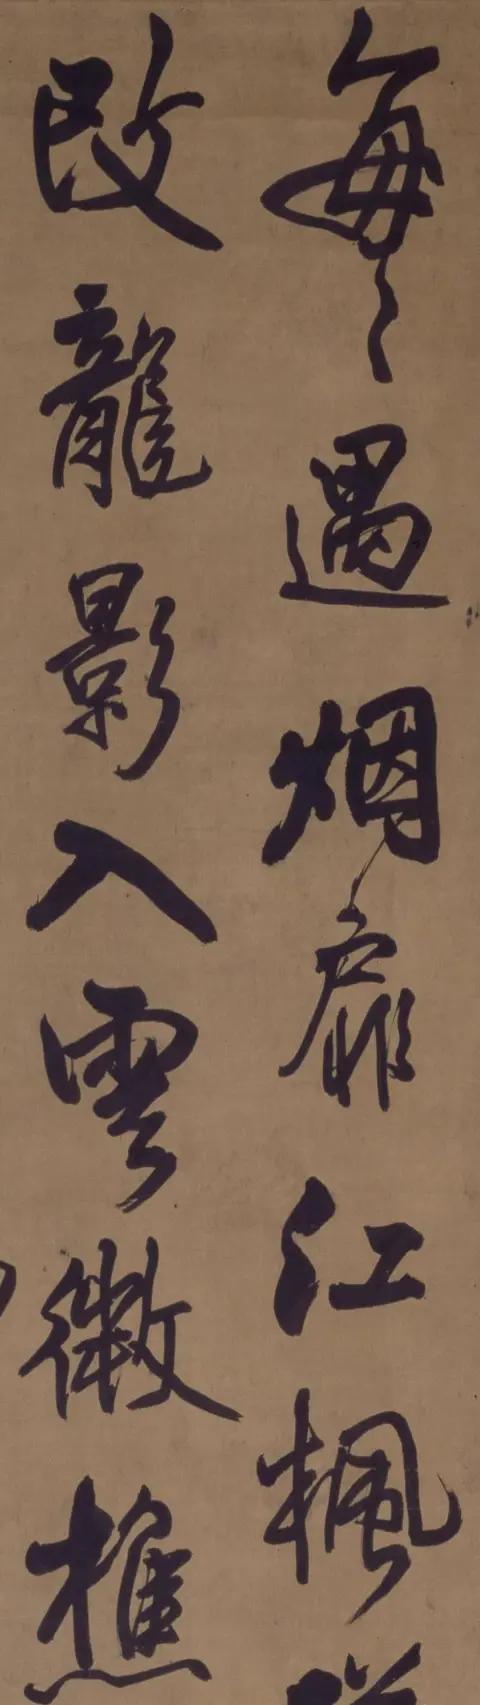 每々遇烟扉江楓
改龍影入雲微樵